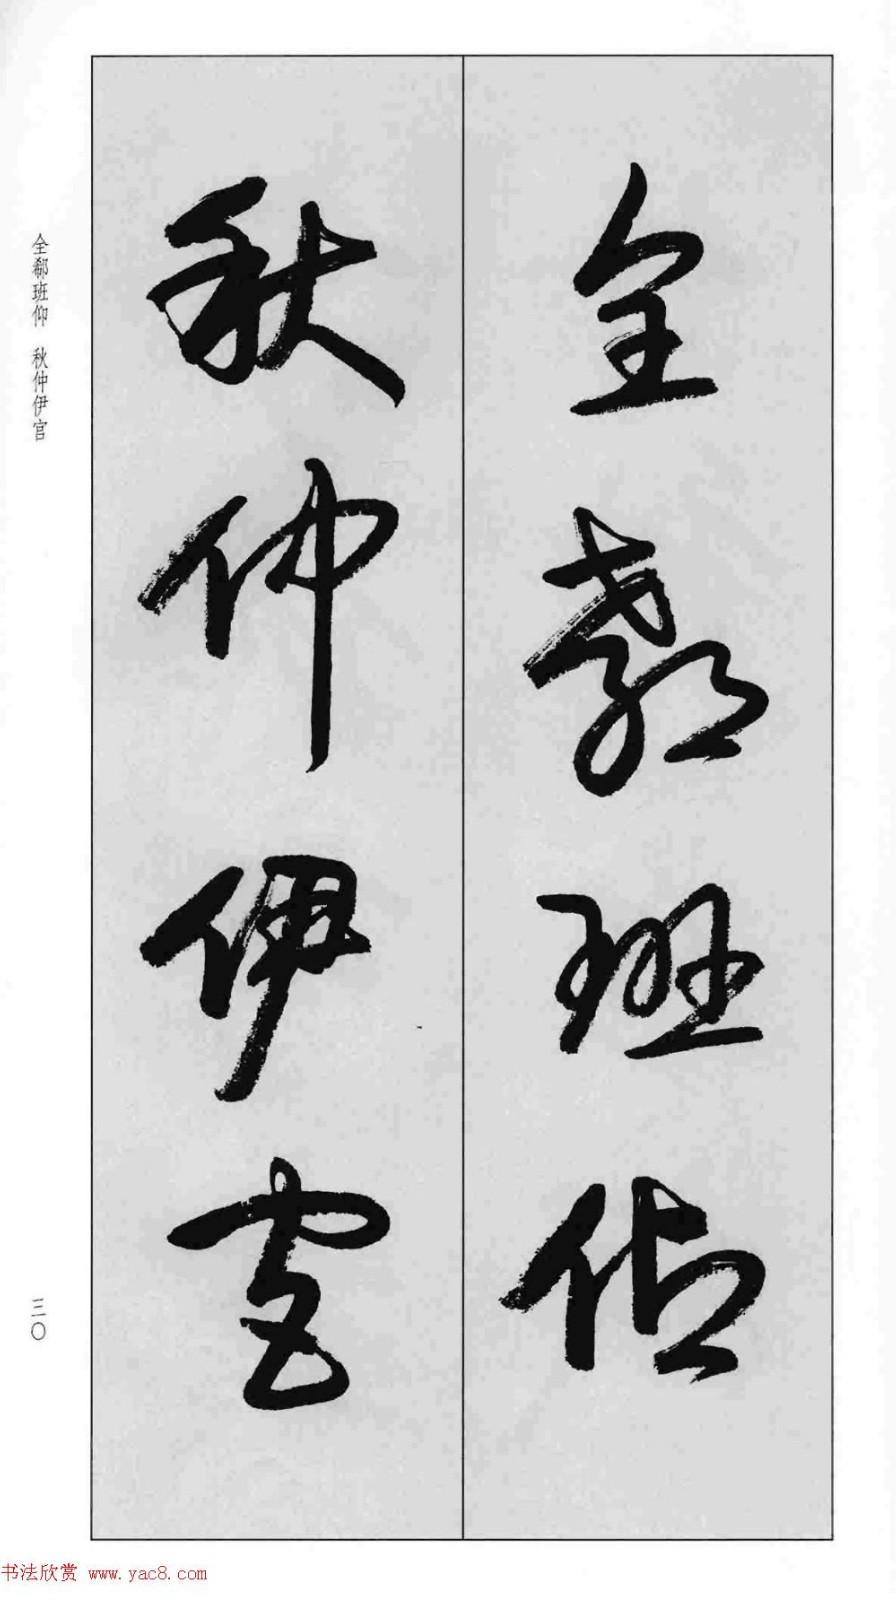 全郗班仰
秋仲伊宫
全郗班仰 秋仲伊宫
三〇
书法欣赏 www.yac8.com